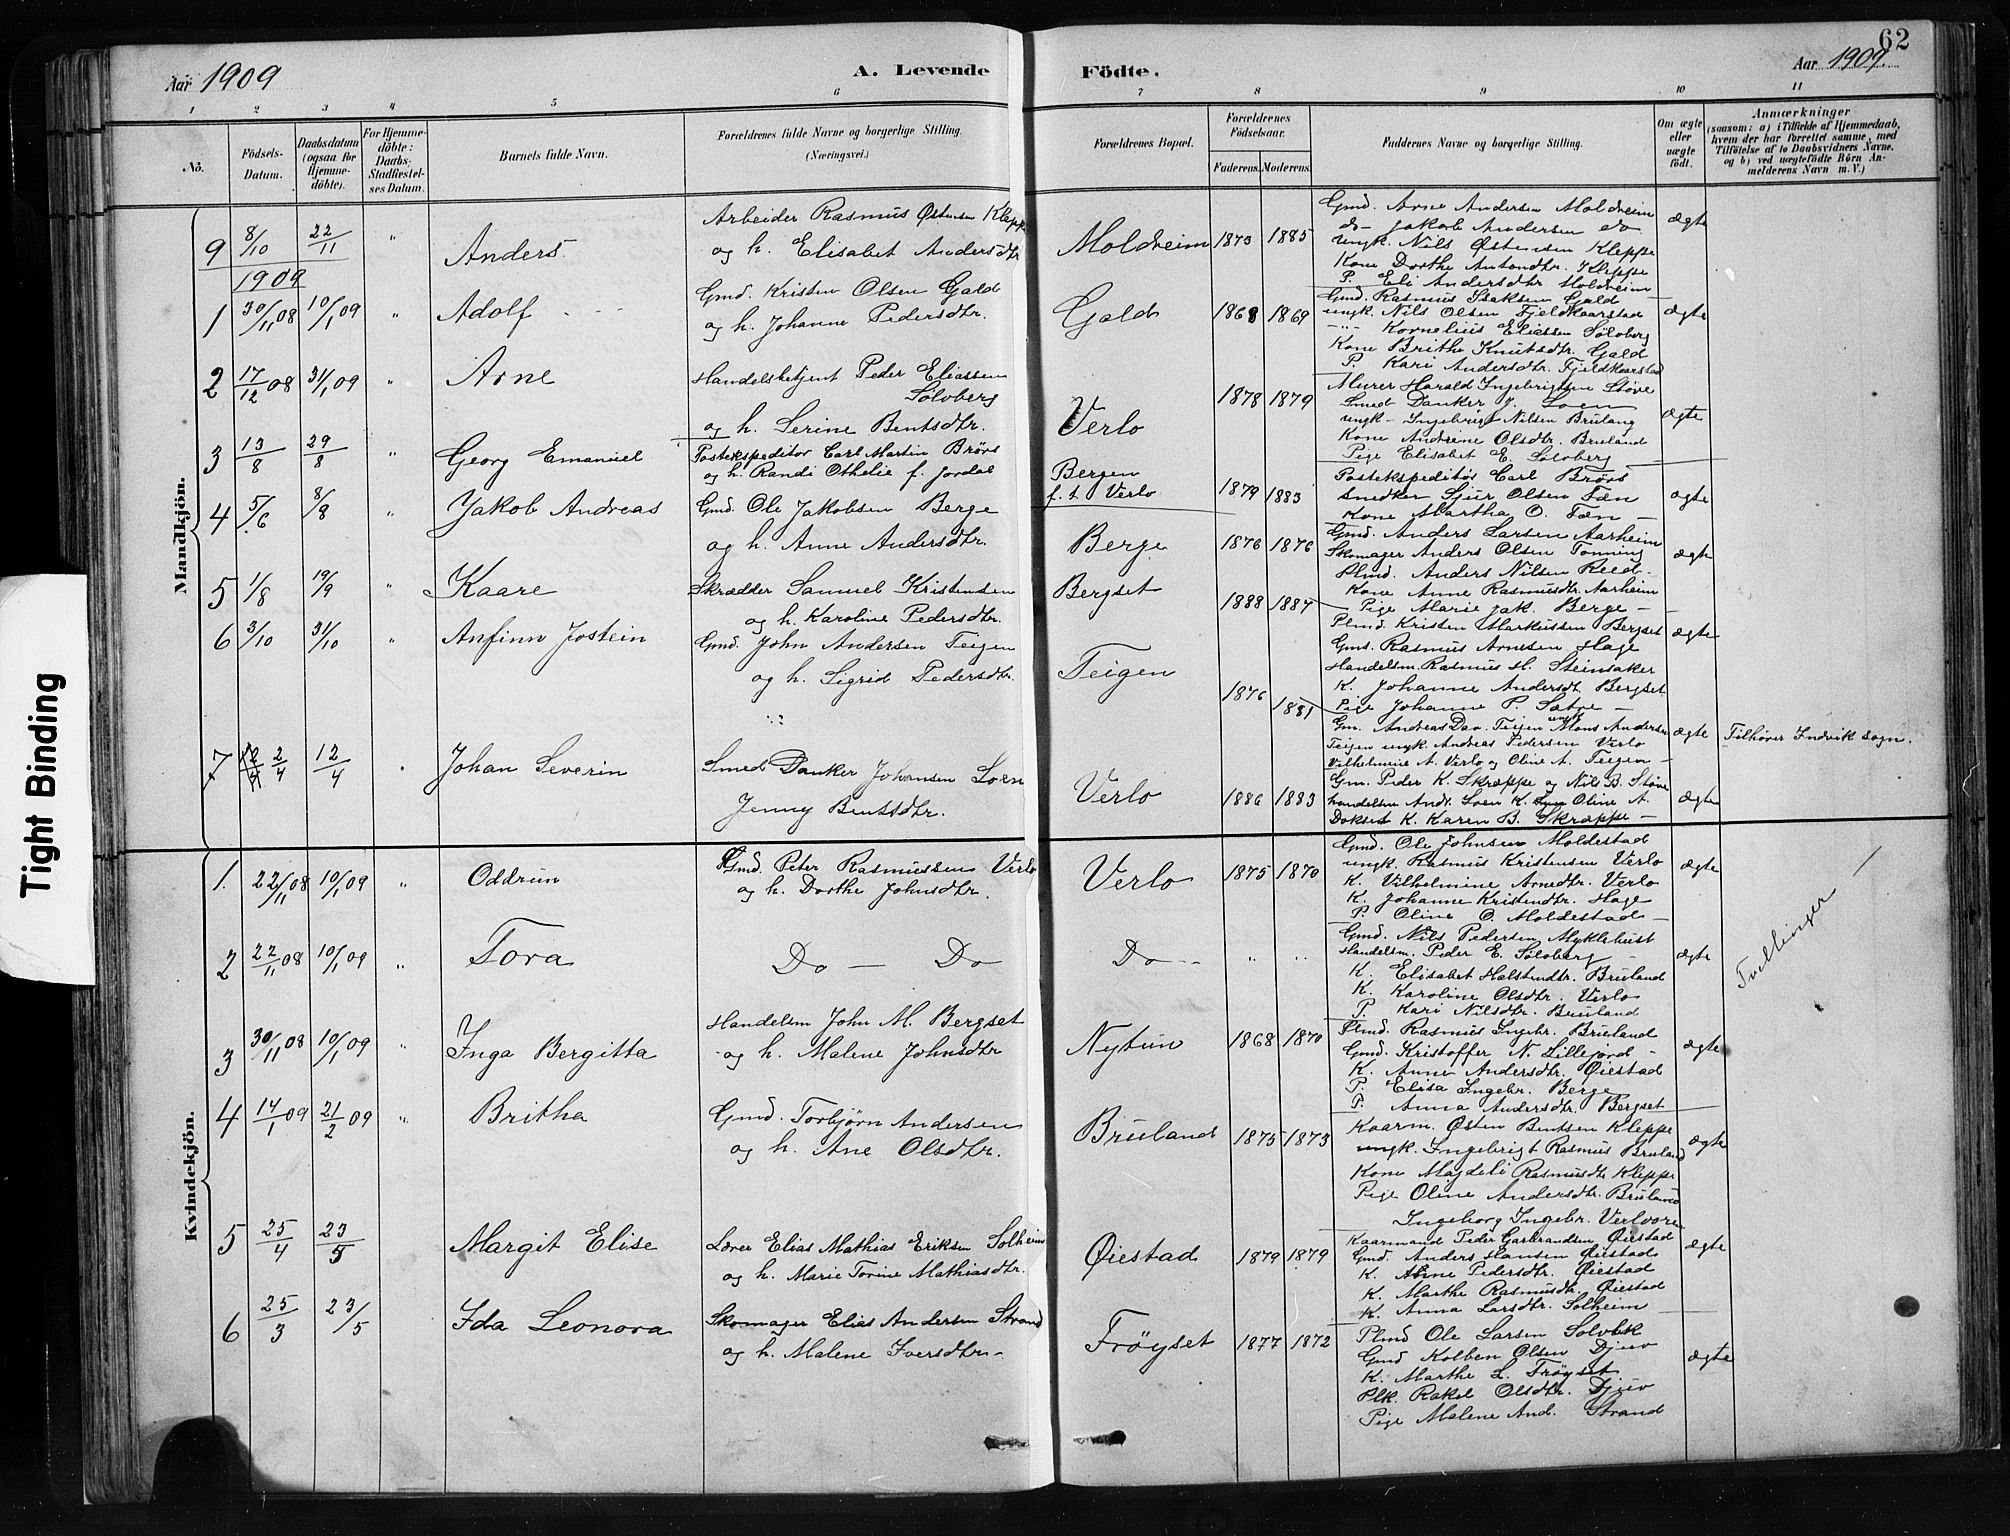 62
Aar 1909
A. Levende
Födte.
Aar 1909
1 2 3 4 5 6 7 8 9 10 11
No.
Födsels-Datum.
Daabsdatum (ogsaa for Hjemme-döbte).
For Hjemme-döbte: Daabs-Stadfæstel-ses Datum.
Barnets fulde Navn.
Forældrenes fulde Navne og borgerlige Stilling. (Næringsvei.)
Forældrenes Bopæl.
Forældrenes Födselsaar.
Faderens. Moderens.
Faddernes Navne og borgerlige Stilling.
Om ægte eller uægte födt.
Anmærkninger
(saasom: a) i Tilfælde af Hjemmedaab, hvem der har forrettet samme, med Tilföielse af to Daabsvidners Navne. og b) ved uægtefödte Börn An-melderens Navn m. V.)
Mandkjön.
9 8/10 22/11 " Anders Arbeider Rasmus Østensen Kleppe
og h. Elisabet Andersdtr Moldreim 1873 1885 ægte
Gmd. Arne Andersen Moldreim
do- Jakob Andersen do
ungk. Nils Østensen Kleppe
Kone Dorthe Antondtr. Kleppe
P. Eli Andersdtr Moldreim
1909
1 30/11 08 10/1 09 " Adolf Gmd. Kristen Olsen Gald
og h. Johanne Pedersdtr. Gald 1868 1869 ægte
Gmd. Rasmus Isaksen Gald
ungk. Nils Olsen Fjeldkaarstad
-"- Kornelius Eliassen Sølvberg
Kone Brithe Knutsdtr. Gald
P. Kari Andersdtr. Fjeldkaarstad
2 17/12 08 31/1 09 " Arne Handelsbetjent Peder Eliassen
Sølvberg
og h. Serine Bentsdtr. Verlo 1878 1879 ægte
Murer Harald Ingebrigtsen Støve
Smed Danker J. Loen
ungk- Ingebrigt Nilsen Bruland
Kone Andrine Olsdtr. Bruland
Pige Elisabet E. Sølvberg
3 13/8 29/8 " Georg Emanuel Postekspeditør Carl Martin Brørs
og h. Randi Othelie f. Jordal Bergen
f. t. Verlo 1879 1883 ægte
Postekspeditør Carl Brørs
Snedker Sjur Olsen Fæn
Kone Martha O. Fæn
4 5/6 8/8 " Jakob Andreas Gmd. Ole Jakobsen Berge
og h. Anne Andersdtr. Berge 1876 1876 ægte
Gmd. Anders Larsen Aarheim
Skomager Anders Olsen Tonning
Plmd. Anders Nilsen Reed
Kone Anne Rasmusdtr. Aarheim
Pige Marie Jak. Berge
5 1/8 19/9 " Kaare Skrædder Samuel Kristensen
og h. Karoline Pedersdtr. Bergset 1888 1887 ægte
Plmd. Kristen Markussen Bergset
Gmd. Rasmus Arnesen Hage
Handelsm. Rasmus H. Steinsaker
K. Johanne Andersdt. Bergset
Pige Johanne P. Sætre
6 3/10 31/10 " Anfinn Jostein Gmd. John Andersen Teigen
og h. Sigrid Pedersdtr. Teigen 1876 1881 ægte Tilhører Indvik sogn.
Gm. Andreas Dav. Teigen ungk Mons Andersen
Teigen ungk. Andreas Pedersen Verlo
Vilhelmine A. Verlo og Oline A. Teigen
7 2/4 12/4 " Johan Severin Smed Danker Johansen Loen
Jenny Bentsdtr. Verlo 1886 1883 ægte
Gm. Peder K. Skrøppe og Nils B. Støve
handelsm Andr. Loen K. Oline A.
Dokset K. Karen B. Skrøppe
Kvindekjön.
1. 22/11 08 10/1 09 " Oddrun Gmd. Peter Rasmussen Verlo
og h. Dorthe Johnsdtr. Verlo 1875 1870 ægte
Gmd. Ole Johnsen Moldestad
ungk. Rasmus Kristensen Verlo
K. Vilhelmine Arnedtr. Verlo
K. Johanne Kristendtr. Hage
P. Oline O. Moldestad
2 22/11 08 10/1 09 " Tora Do — Do Do " " ægte Tvillinger
Gmd. Nils Pedersen Myklebust
Handelsm. Peder E. Sølvberg
K. Elisabet Halstendtr. Bruland
K. Karoline Olsdtr. Verlo
P. Kari Nilsdtr. Bruland
3 30/11 08 10/1 09 " Inga Bergitta Handelsm John M. Bergset
og h. Malene Johnsdtr Nytun 1868 1870 ægte
Plmd. Rasmus Ingebr. Bruland
Gmd. Kristoffer N. Lillejord
K. Anne Andersdtr. Øiestad
P. Elisa Ingebr. Berge
P. Anna Andersdtr. Bergset
4 14/1 09 21/2 09 " Britha Gmd. Torbjørn Andersen
og h. Ane Olsdtr. Bruland 1875 1873 ægte
Kaarm. Østen Bentsen Kleppe
ungk. Ingebrigt Rasmus Bruland
Kone Magdeli Rasmusdtr Kleppe
Pige Oline Andersdtr. Bruland
Ingeborg Ingebr. Verlvore
5 25/4 23/5 Margit Elise Lærer Elias Mathias Eriksen Solheim
og h. Marie Torine Mathiasdtr. Øiestad 1879 1879 ægte
Kaarmand Peder Garbrandsen Øiestad
Gmd. Anders Hansen Øiestad
K. Anne Pedersdtr. Øiestad
K. Marthe Rasmusdtr. Øiestad
K. Anna Larsdtr. Solheim
6 25/3 23/5 Ida Leonora Skomager Elias Andersen Strand
og h. Malene Iversdtr. Frøyset 1877 1872 ægte
Plmd Ole Larsen Solvik
Gmd Kolben Olsen Djuv
K. Marthe L. Frøyset
Plk. Rakel Olsdtr. Djuv
Pige Malene And. Strand
Tight Binding